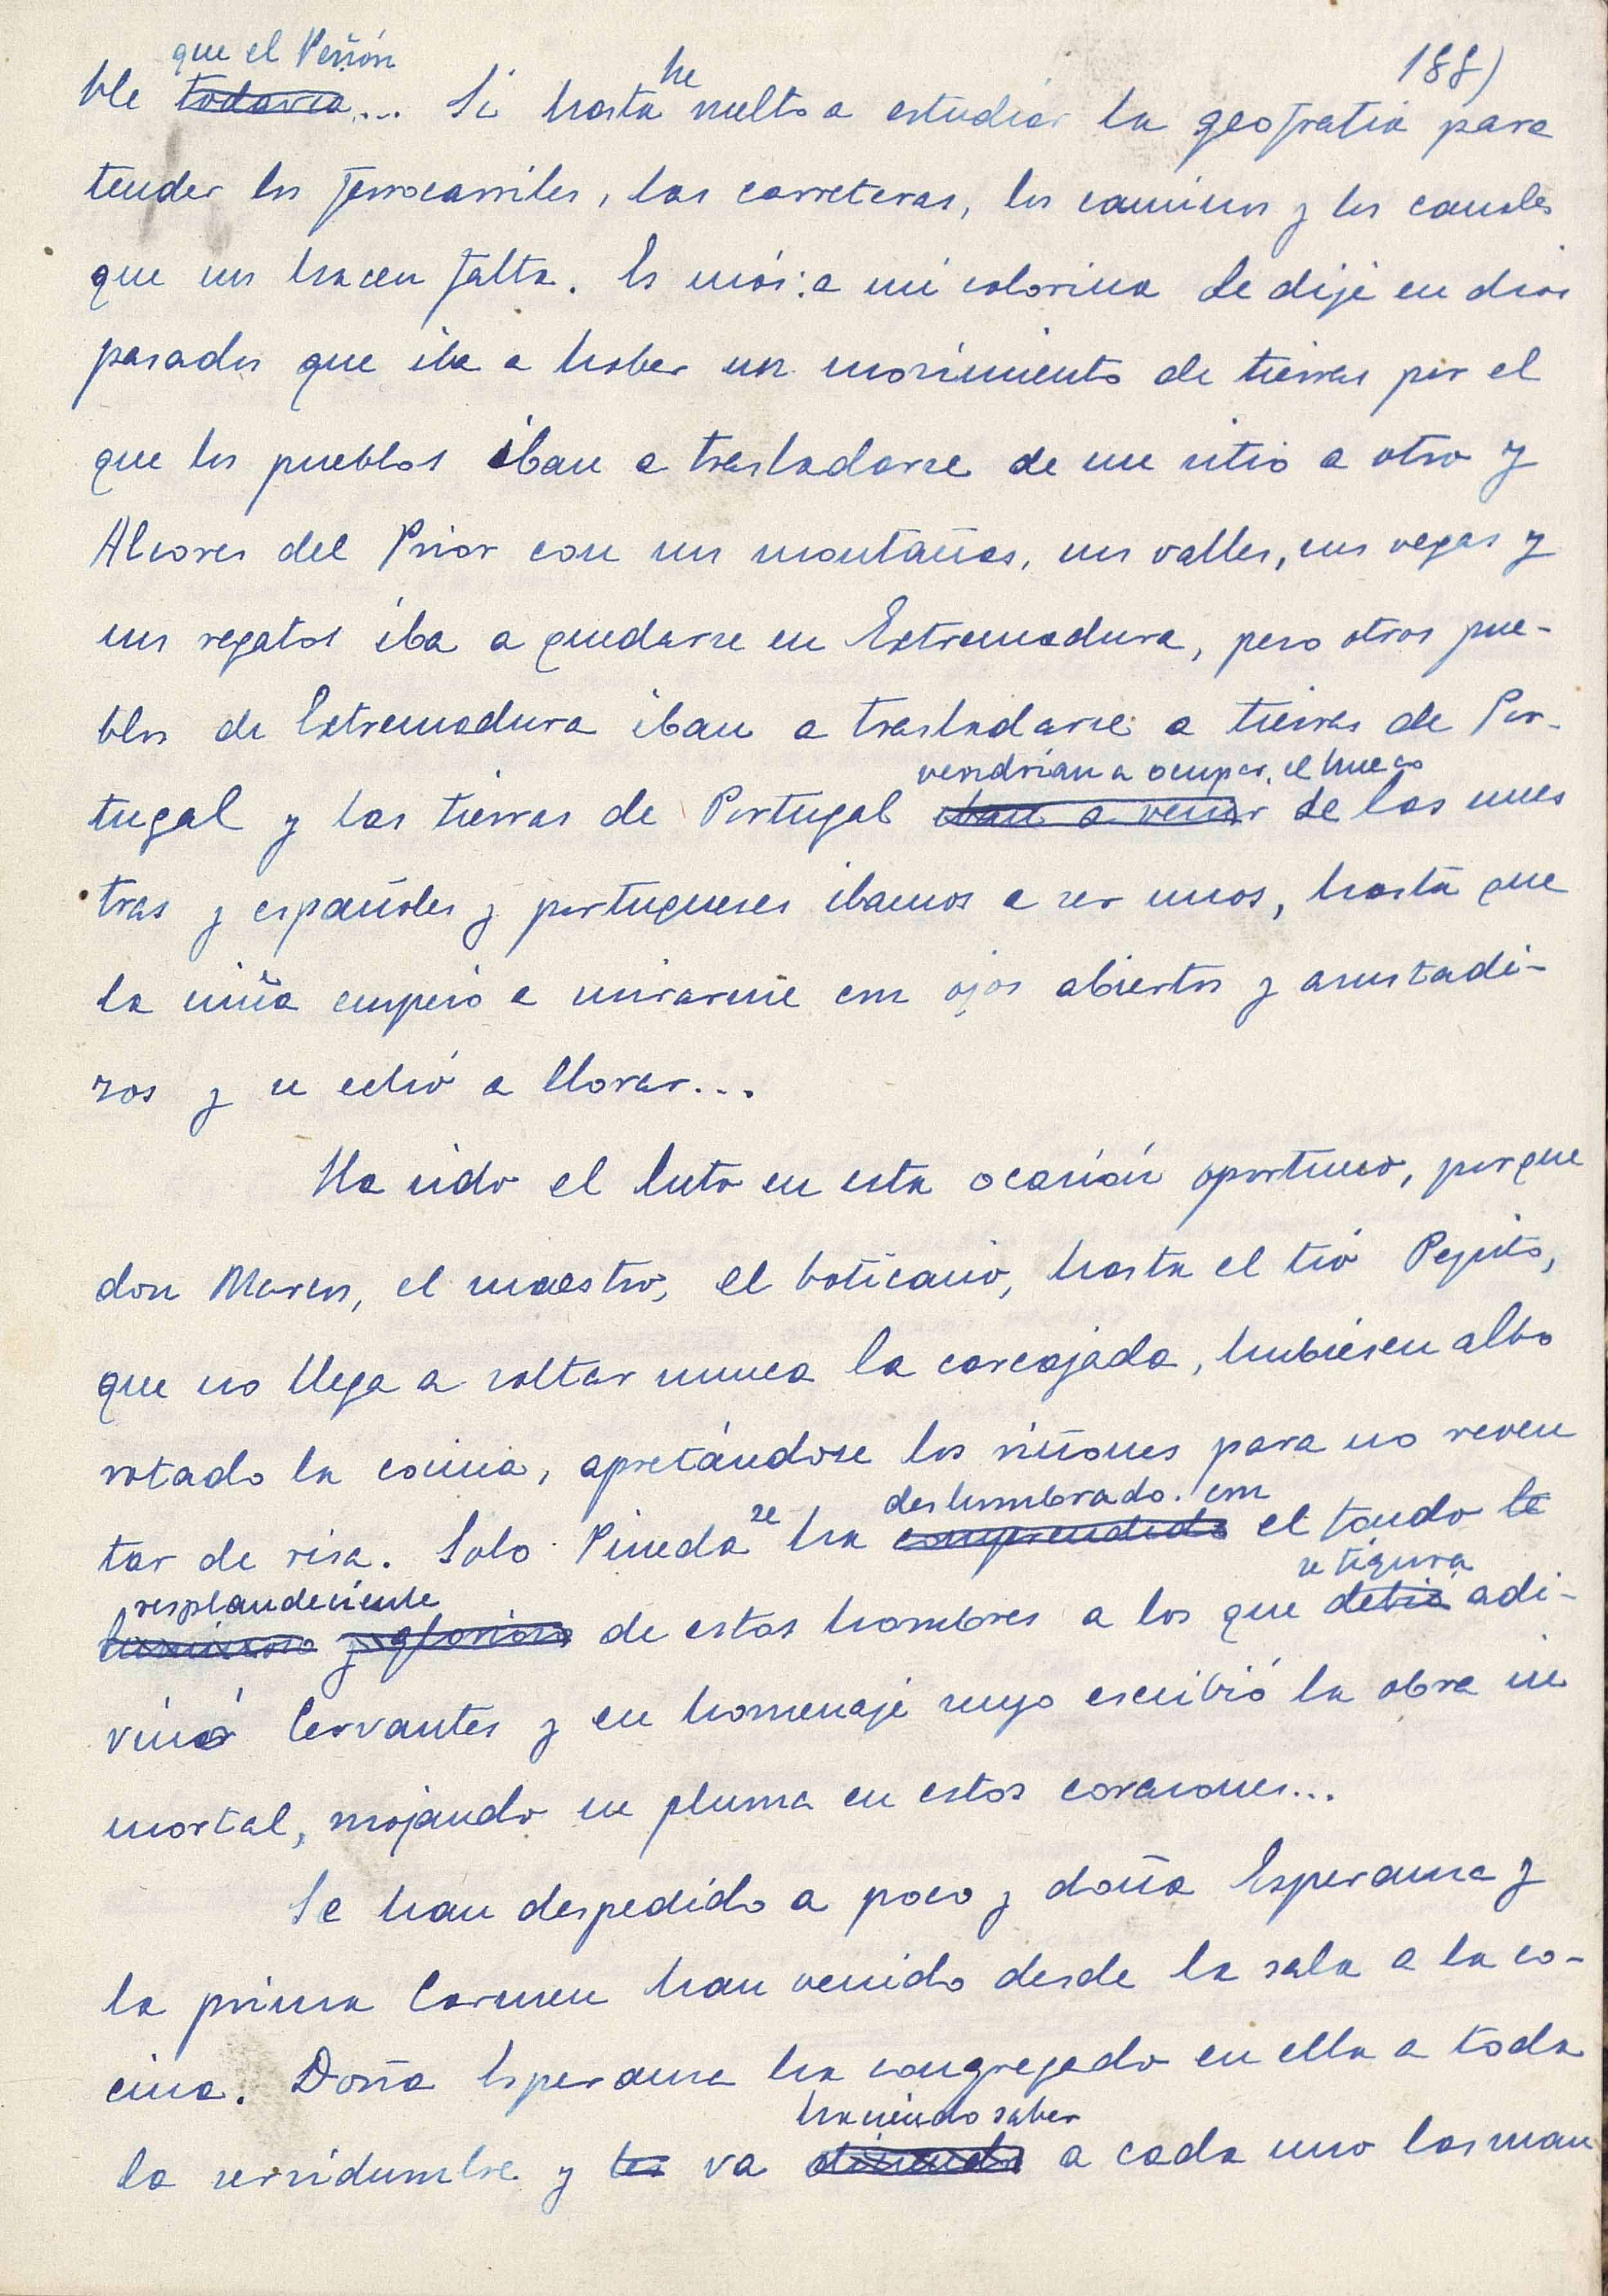 188)
que el Peñón
ble todavia... Si hasta he vuelto a estudiar la geografia para
tender los ferrocarriles, las carreteras, los caminos y los canales
que nos hacen falta. Es más: a mi colorina le dije en dias
pasados que iba a haber un movimiento de tierras por el
que los pueblos iban a trasladarse de un sitio a otro y
Alcores del Prior con sus montañas, sus valles, sus vegas y
sus regatos iba a quedarse en Extremadura, pero otros pue-
blos de Extremadura iban a trasladarse a tierras de Por-
vendrian a ocupar el hueco
tugal y las tierras de Portugal iban a venir de las nues
tras y españoles y portugueses ibamos a ser unos, hasta que
la niña empezó a mirarme con ojos abiertos y asustadi-
zos y se echó a llorar...
Ha sido el luto en esta ocasión oportuno, porque
don Marcos, el maestro, el boticario, hasta el tió Pepito,
que no llega a soltar nunca la carcajada, hubiesen albo
rotado la cocina, apretándose los riñones para no reven
deslumbrado con
tar de risa. Solo Pineda se ha comprendido el fondo le
resplandeciente se figura
luminoso y glorioso de estos hombres a los que debió adi-
vinó Cervantes y en homenaje suyo escribió la obra in
mortal, mojando su pluma en estos corazones...
Se han despedido a poco y doña Esperanza y
la prima Carmen han venido desde la sala a la co-
cina. Doña Esperanza ha congregado en ella a toda
haciendo saber
la servidumbre y les va diciendo a cada uno las man